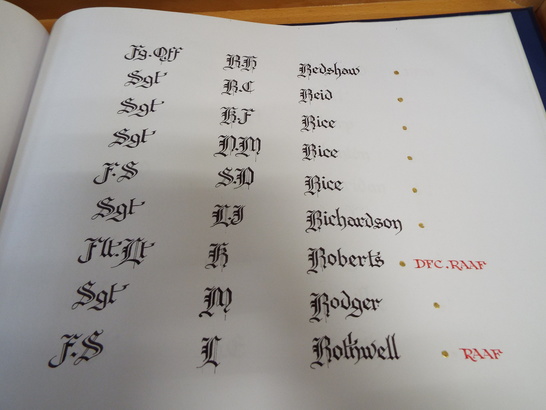 Fg.Off R H Redshaw
Sgt R.C Reid
Sgt K F Rice
Sgt D.M Rice
F.S S.D Rice
Sgt L J Richardson
Flt.Lt K Roberts DFC.RAAF
Sgt M Rodger
F.S L Rothwell RAAF